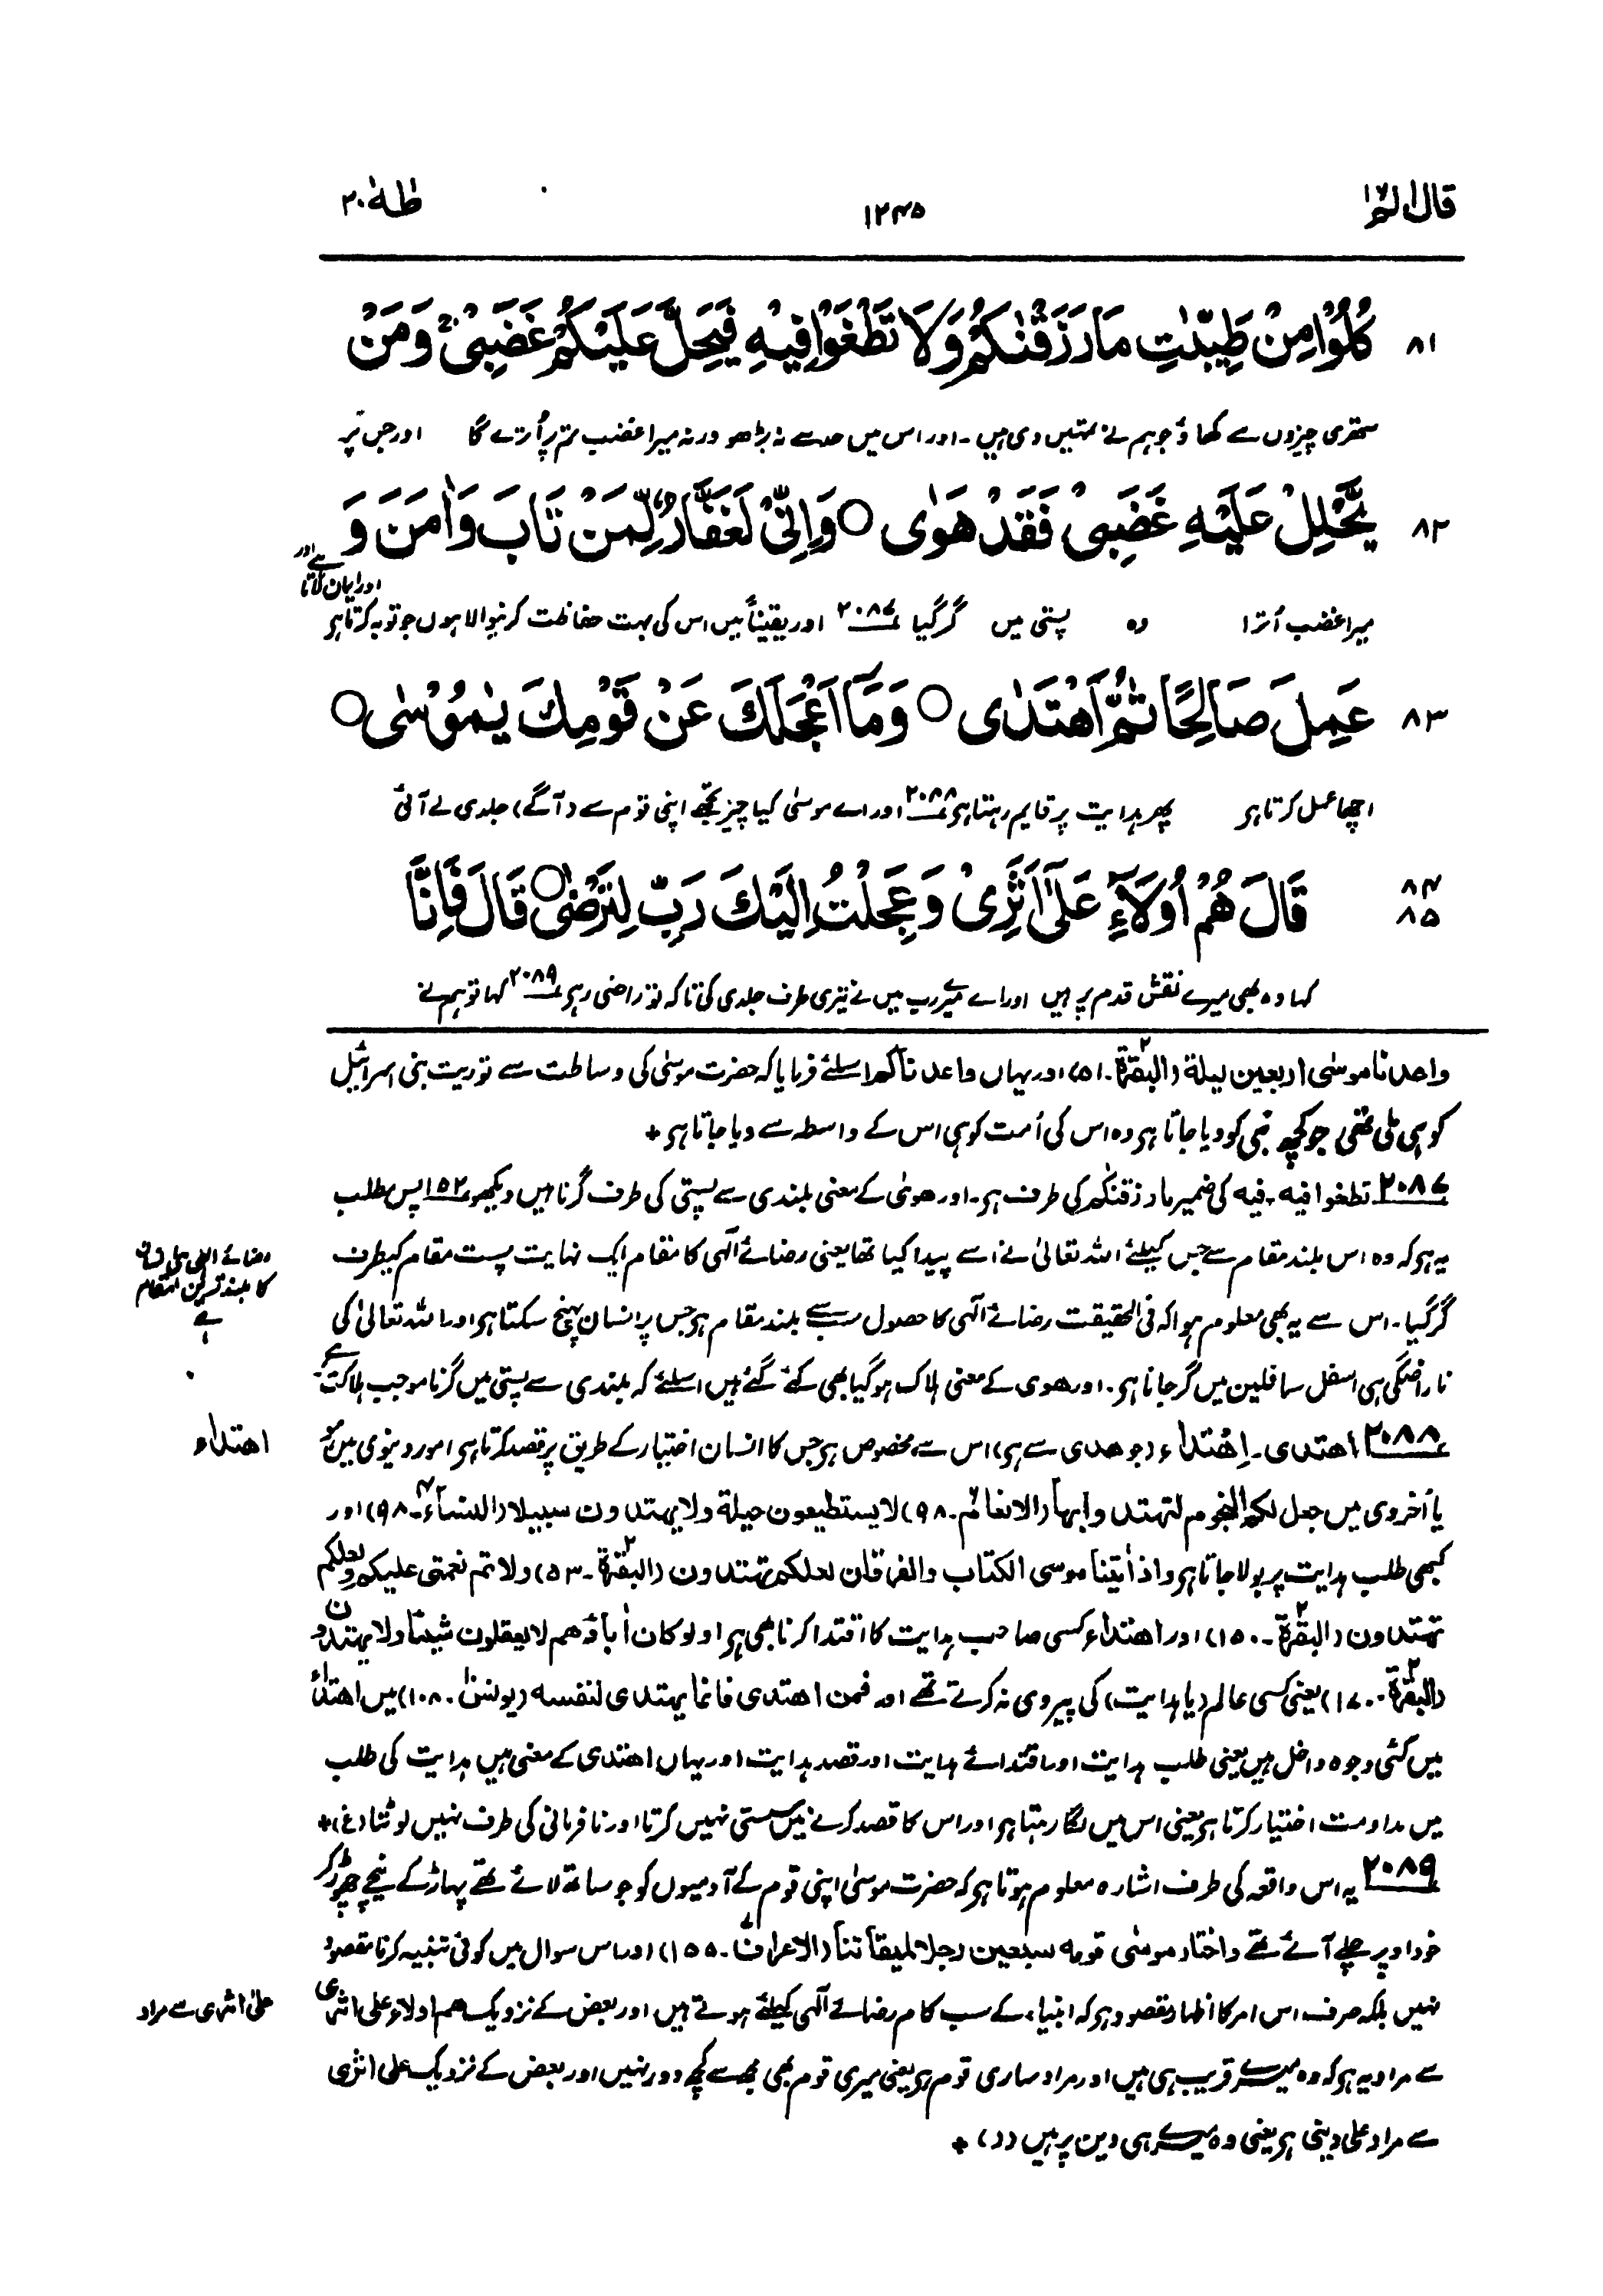 قال الم ۱۶
۱۲۴۵
طٰهٰ ۲۰
۸۱ كُلُوْا مِنْ طَيِّبٰتِ مَا رَزَقْنٰكُمْ وَلَا تَطْغَوْا فِيْهِ فَيَحِلَّ عَلَيْكُمْ غَضَبِيْ ۚ وَمَنْ
ستھری چیزوں سے کھاؤ جو ہم نے تمہیں دی ہیں۔ اور اس میں حد سے نہ بڑھو ورنہ میرا غضب تم پر اُترے گا اور جس پر
۸۲ يَّحْلِلْ عَلَيْهِ غَضَبِيْ فَقَدْ هَوٰى ○ وَاِنِّيْ لَغَفَّارٌ لِّمَنْ تَابَ وَاٰمَنَ وَ
میرا غضب اُترا وہ پستی میں گر گیا ۲۰۸۷ اور یقیناً میں اس کی بہت حفاظت کرنیوالا ہوں جو توبہ کرتا ہر اور ایمان لاتا ہے اور
۸۳ عَمِلَ صَالِحًا ثُمَّ اهْتَدٰى ○ وَمَآ اَعْجَلَكَ عَنْ قَوْمِكَ يٰمُوْسٰى ○
اچھا عمل کرتا ہر پھر ہدایت پر قایم رہتا ہر ۲۰۸۸ اور اے موسٰی کیا چیز تجھے اپنی قوم سے (آگے) جلدی لے آئی
۸۴ ۸۵ قَالَ هُمْ اُولَآءِ عَلٰٓى اَثَرِيْ وَعَجِلْتُ اِلَيْكَ رَبِّ لِتَرْضٰى ○ قَالَ فَاِنَّا
کہا وہ بھی میرے نقش قدم پر ہیں اور اے میرے رب میں نے تیری طرف جلدی کی تاکہ تو راضی رہر ۲۰۸۹ کہا تو ہم نے
واعدنا موسٰی اربعین لیلة (البقرة ۲۔ ۵۱) اور یہاں واعدناکم اسلئے فرمایا کہ حضرت موسٰی کی وساطت سے توریت بنی اسرائیل
کو ہی ملی تھی جو کچھ نبی کو دیا جاتا ہر وہ اس کی اُمت کو ہی اس کے واسطہ سے دیا جاتا ہر +
۲۰۸۷ تطغوا فیه۔ فیه کی ضمیر ما رزقنٰکم کی طرف ہر۔ اور ھوٰی کے معنی بلندی سے پستی کی طرف گرنا ہیں دیکھو ۱۵۲ پس مطلب
یہ ہر کہ وہ اس بلند مقام سے جس کیلئے اللہ تعالیٰ نے اسے پیدا کیا تھا یعنی رضائے الٰہی کا مقام ایک نہایت پست مقام کیطرف
گر گیا۔ اس سے یہ بھی معلوم ہوا کہ فی الحقیقت رضائے الٰہی کا حصول سب سے بلند مقام ہر جس پر انسان پہنچ سکتا ہر اور اللہ تعالیٰ کی
ناراضگی ہی اسفل سافلین میں گر جانا ہر۔ اور ھوی کے معنی ہلاک ہو گیا بھی کئے گئے ہیں اسلئے کہ بلندی سے پستی میں گرنا موجب ہلاکت ہے
رضائے الٰہی ہی انسان
کا بلند ترین مقام
ہے
۲۰۸۸ اھتدی۔ اِھْتِداء (جو ھدی سے ہر) اس سے مخصوص ہر جس کا انسان اختیار کے طریق پر قصد کرتا ہر امور دنیوی میں ہو
اھتداء
یا اُخروی میں جعل لکم النجوم لتهتدوا بها (الانعام ۶۔ ۹۸) لا یستطیعون حیلة ولا یهتدون سبیلا (النساء ۴۔ ۹۸) اور
کبھی طلب ہدایت پر بولا جاتا ہر واذ اٰتینا موسی الکتاب والفرقان لعلکم تهتدون (البقرة ۲۔ ۵۳) ولاتم نعمتی علیکم ولعلکم
تهتدون (البقرة ۲۔ ۱۵۰) اور اھتداء کسی صاحب ہدایت کا اقتدا کرنا بھی ہر اولو کان اٰباؤهم لا یعقلون شیئا ولا یهتدون
(البقرة ۲۔ ۱۷۰) یعنی کسی عالم (با ہدایت) کی پیروی نہ کرتے تھے اور فمن اهتدی فانما یهتدی لنفسه (یونس ۱۰۔ ۱۰۸) میں اھتداء
میں کئی وجوہ داخل ہیں یعنی طلب ہدایت اور اقتدائے ہدایت اور قصد ہدایت اور یہاں اھتدی کے معنی ہیں ہدایت کی طلب
میں مداومت اختیار کرتا ہر یعنی اس میں لگا رہتا ہر اور اس کا قصد کرنے میں سستی نہیں کرتا اور نافرمانی کی طرف نہیں لوٹتا (غ) +
۲۰۸۹ یہ اس واقعہ کی طرف اشارہ معلوم ہوتا ہر کہ حضرت موسٰی اپنی قوم کے آدمیوں کو جو ساتھ لائے تھے پہاڑ کے نیچے چھوڑ کر
خود اوپر چلے آئے تھے واختار موسٰی قومه سبعین رجلا لمیقاتنا (الاعراف ۷۔ ۱۵۵) اور اس سوال میں کوئی تنبیہ کرنا مقصود
نہیں بلکہ صرف اس امر کا اظہار مقصود ہر کہ انبیاء کے سب کام رضائے الٰہی کیلئے ہوتے ہیں اور بعض کے نزدیک هم اولاء علی اثری
علیٰ اثری سے مراد
سے مراد یہ ہر کہ وہ میرے قریب ہی ہیں اور مراد ساری قوم ہر یعنی میری قوم بھی مجھ سے کچھ دور نہیں اور بعض کے نزدیک علی اثری
سے مراد علی دینی ہر یعنی وہ میرے ہی دین پر ہیں (ر) +